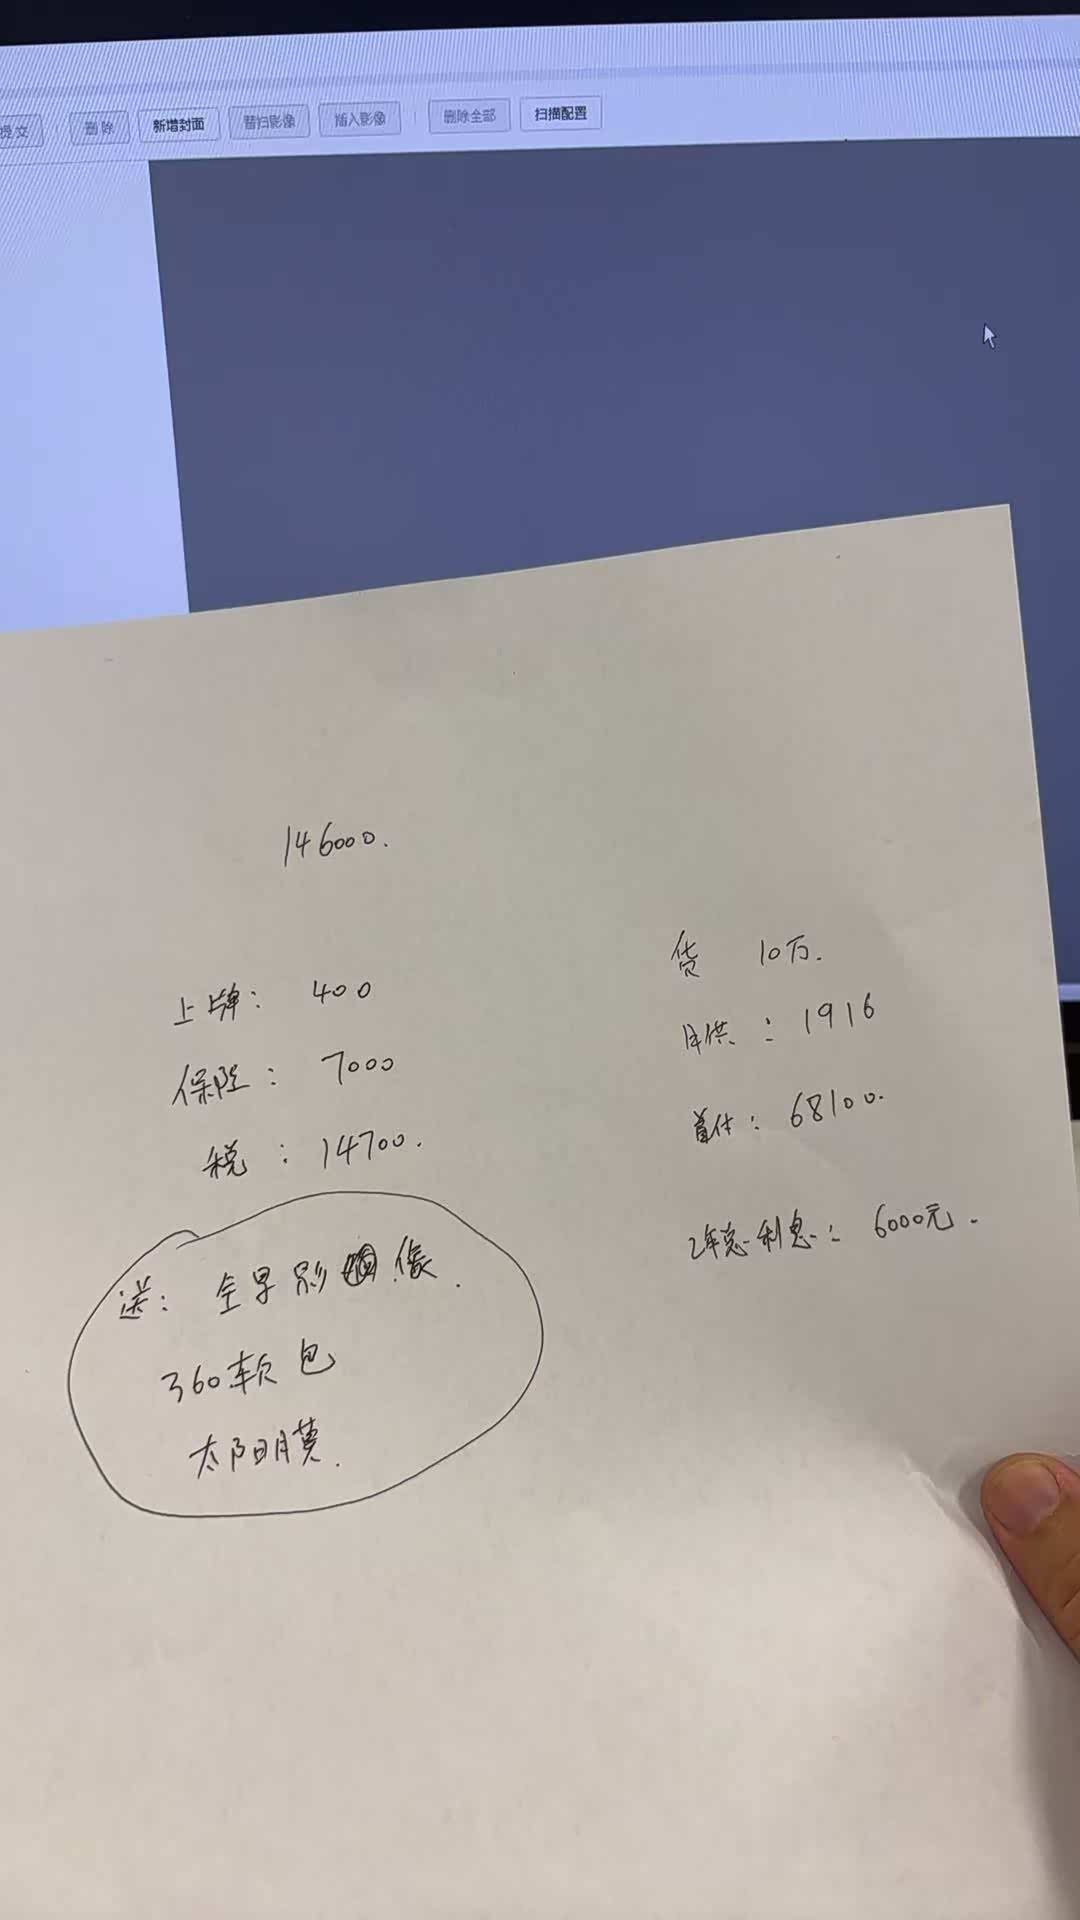 提交 删除 新增封面 替扫影像 插入影像 删除全部 扫描配置
146000.
上牌: 400
保险: 7000
税: 14700.
送: 全景影像.
360软包
太阳膜.
贷 10万.
月供: 1916
首付: 68100.
2年总利息: 6000元.